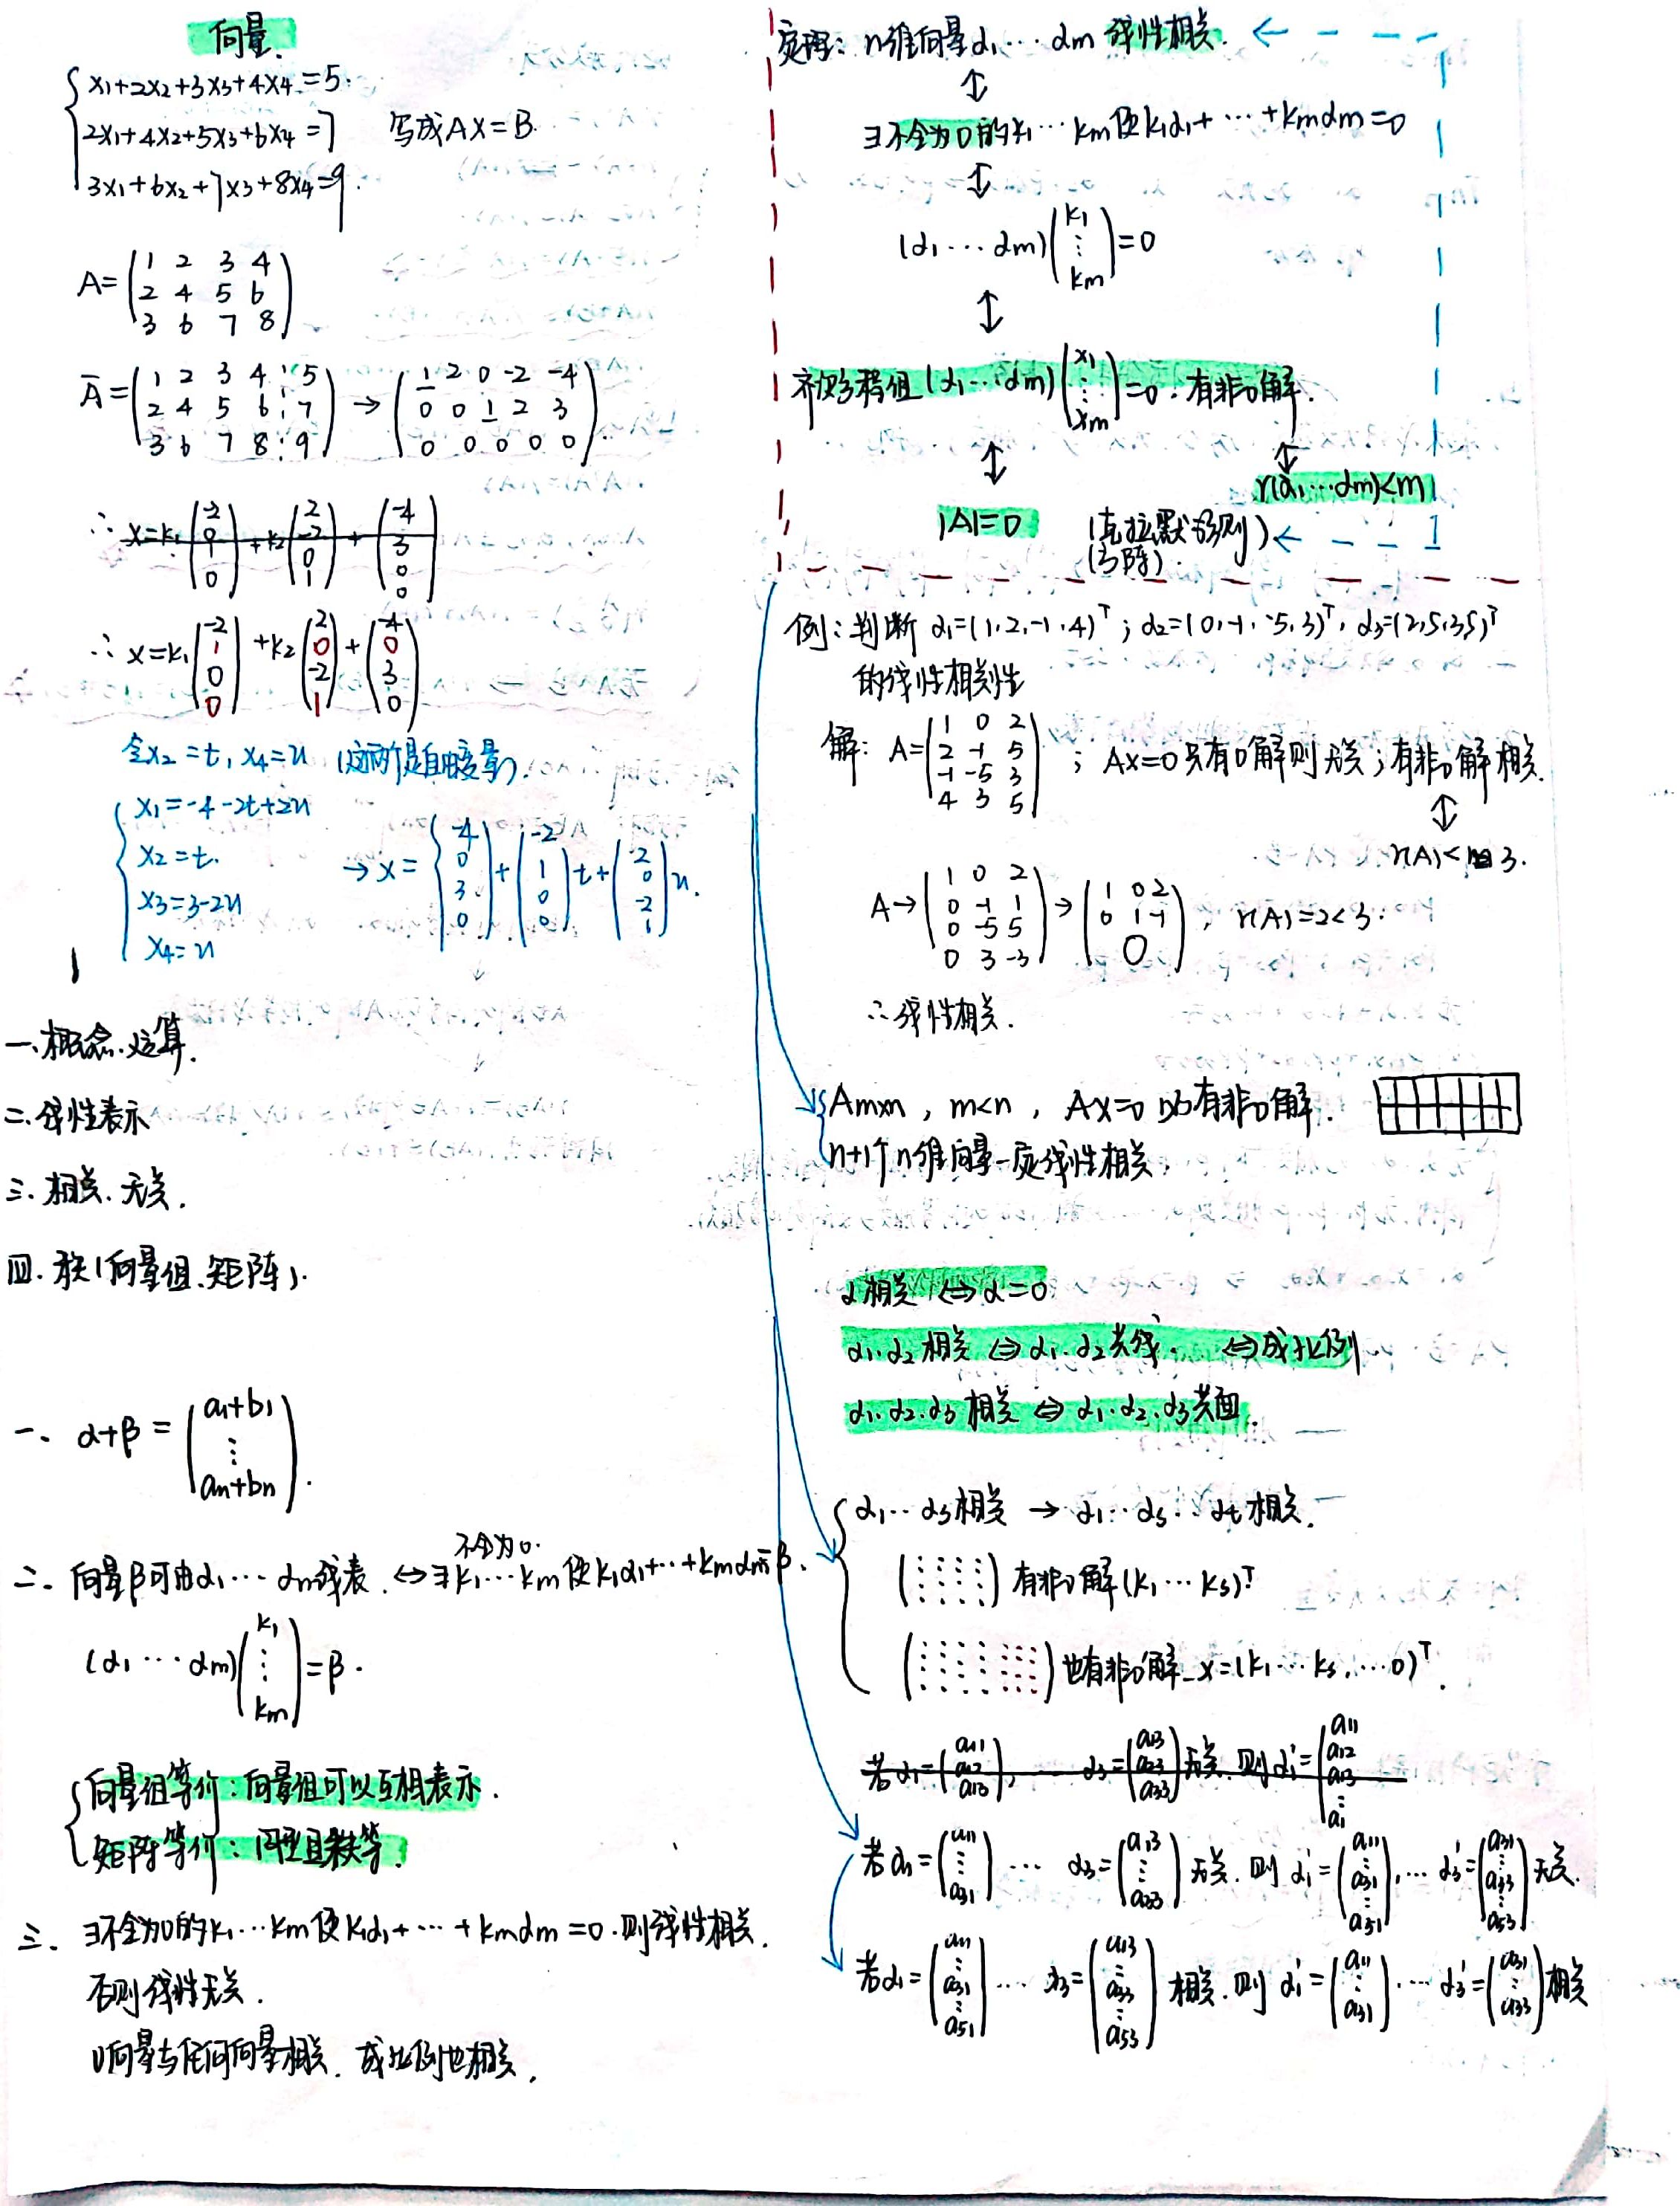 向量.
x1+2x2+3x3+4x4=5.
2x1+4x2+5x3+6x4=7 写成AX=B.
3x1+6x2+7x3+8x4=9.
A=(1 2 3 4
2 4 5 6
3 6 7 8)
Ā=(1 2 3 4 ⋮ 5
2 4 5 6 ⋮ 7
3 6 7 8 ⋮ 9) → (1 2 0 -2 -4
0 0 1 2 3
0 0 0 0 0).
∴ x=k1(-2 0 1 0)+k2(2 -2 0 1)+(-4 3 0 0)
∴ x=k1(-2 1 0 0)+k2(2 0 -2 1)+(-4 0 3 0)
令x2=t, x4=u (这两个是自由变量).
x1=-4-2t+2u
x2=t.
x3=3-2u
x4=u
→x=(-4 0 3 0)+(-2 1 0 0)t+(2 0 -2 1)u.
一.概念.运算.
二.线性表示
三.相关.无关.
四.秩(向量组.矩阵).
一、α+β=(a1+b1 ⋮ an+bn).
不全为0.
二、向量β可由α1⋯αn线表.⇔∃k1⋯km使k1α1+⋯+kmαm=β.
(α1⋯αm)(k1 ⋮ km)=β.
向量组等价:向量组可以互相表示.
矩阵等价:同型且秩等.
三、∃不全为0的k1⋯km使k1α1+⋯+kmαm=0.则线性相关.
否则线性无关.
0向量与任何向量相关.成比例也相关.
定理:n维向量α1⋯αm线性相关.
↕
∃不全为0的k1⋯km使k1α1+⋯+kmαm=0
↕
(α1⋯αm)(k1 ⋮ km)=0
↕
齐次方程组(α1⋯αm)(x1 ⋮ xm)=0.有非0解.
↕ ↕
r(α1⋯αm)<m
|A|=0 (克拉默法则)
(方阵).
例:判断 α1=(1,2,-1,4)ᵀ; α2=(0,-1,-5,3)ᵀ, α3=(2,5,3,5)ᵀ
的线性相关性
解: A=(1 0 2
2 -1 5
-1 -5 3
4 3 5) ; Ax=0只有0解则无关;有非0解相关.
↕
r(A)<3.
A→(1 0 2
0 -1 1
0 -5 5
0 3 -3)→(1 0 2
0 1 -1
0), r(A)=2<3.
∴线性相关.
Am×n, m<n, Ax=0 必有非0解.
n+1个n维向量一定线性相关.
α相关⇔α=0
α1.α2相关⇔α1.α2共线. ⇔成比例
α1.α2.α3相关⇔α1.α2.α3共面.
α1⋯αs相关→α1⋯αs⋯αt相关.
有非0解(k1⋯ks)ᵀ
也有非0解 x=(k1⋯ks,⋯0)ᵀ.
若α1=(a11 a12 a13), α3=(a13 a23 a33)无关.则α1'=(a11 a12 a13 ⋮ a1
若α1=(a11 ⋮ a31)⋯α3=(a13 ⋮ a33)无关.则α1'=(a11 ⋮ a31 ⋮ a51),⋯α3'=(a31 ⋮ a33 ⋮ a53)无关.
若α1=(a11 ⋮ a31 ⋮ a51)⋯α3=(a13 ⋮ a33 ⋮ a53)相关.则α1'=(a11 ⋮ a31)⋯α3'=(a31 ⋮ a33)相关